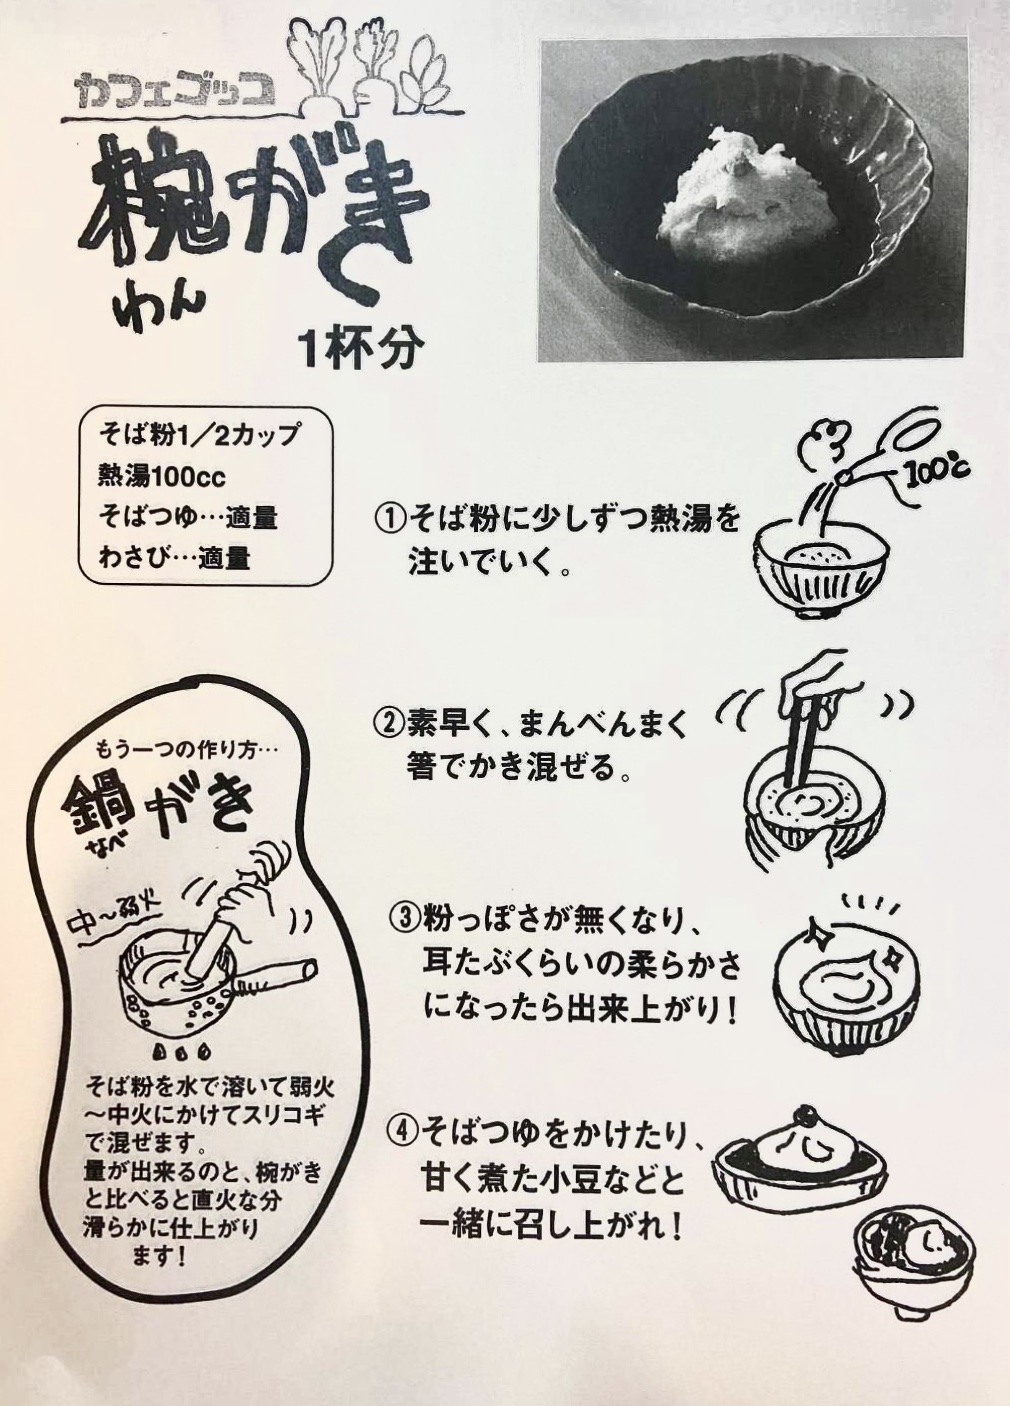 カフェゴッコ
椀がき
わん
1杯分
そば粉1／2カップ
熱湯100cc
そばつゆ…適量
わさび…適量
①そば粉に少しずつ熱湯を
注いでいく。
100℃
②素早く、まんべんまく
箸でかき混ぜる。
③粉っぽさが無くなり、
耳たぶくらいの柔らかさ
になったら出来上がり！
④そばつゆをかけたり、
甘く煮た小豆などと
一緒に召し上がれ！
もう一つの作り方…
鍋がき
なべ
中～弱火
そば粉を水で溶いて弱火
～中火にかけてスリコギ
で混ぜます。
量が出来るのと、椀がき
と比べると直火な分
滑らかに仕上がり
ます！